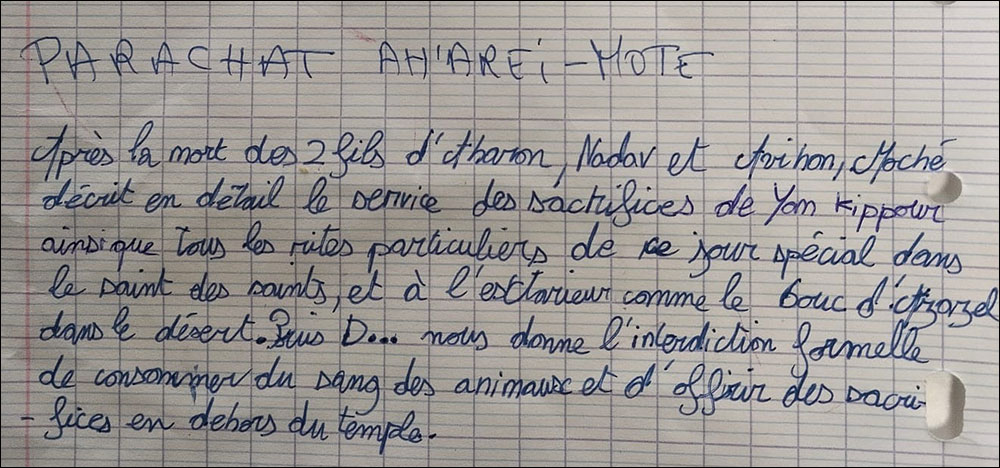 PARACHAT AH'AREÏ-MOTE
Après la mort des 2 fils d'Aharon, Nadav et Avihon, Moché
décrit en détail le service des sacrifices de Yom Kippour
ainsi que tous les rites particuliers de ce jour spécial dans
le saint des saints, et à l'exterieur comme le bouc d'Azazel
dans le désert. Puis D... nous donne l'interdiction formelle
de consommer du sang des animaux et d'offrir des sacri-
-fices en dehors du temple.